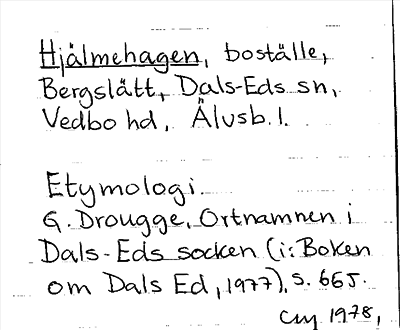 Hjälmehagen, boställe,
Bergslätt, Dals-Eds sn,
Vedbo hd, Älvsb. l.
Etymologi.
G. Drougge, Ortnamnen i
Dals-Eds socken (i: Boken
om Dals Ed, 1977), s. 665.
1978,